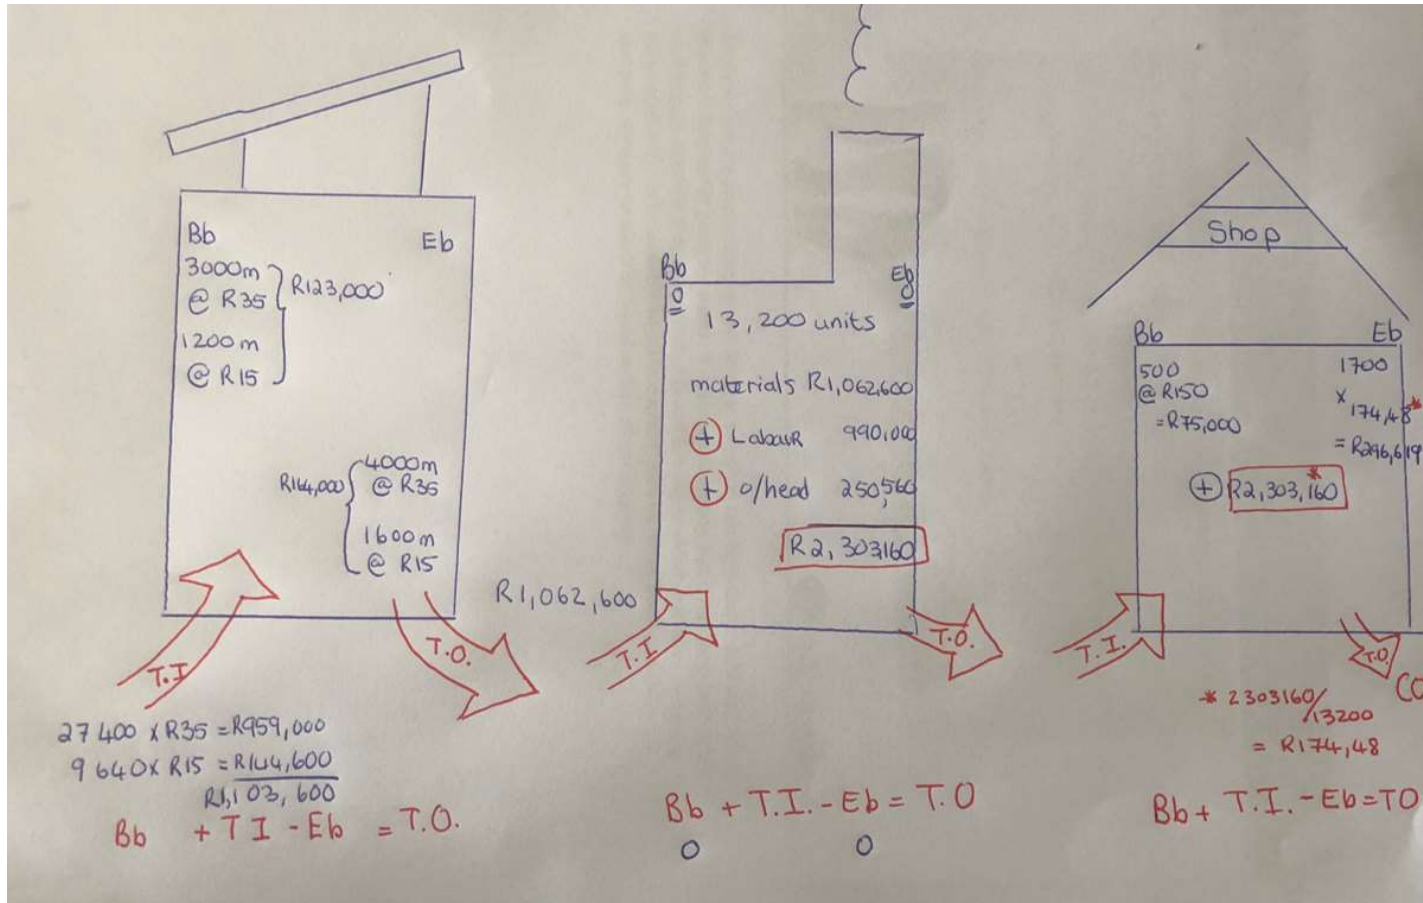 Bb Eb
3000m
@ R35
R123,000
1200m
@ R15
4000m
@ R35
R164,000
1600m
@ R15
T.I
T.O.
27 400 x R35 = R959,000
9 640 x R15 = R144,600
R1,103,600
Bb + T I - Eb = T.O.
Bb Eb
0 0
13,200 units
materials R1,062,600
+ Labour 990,000
+ o/head 250,560
R2,303160
R1,062,600
T.I
T.O.
Bb + T.I. - Eb = T.O
0 0
Shop
Bb Eb
500
@ R150
= R75,000
1700
x 174,48*
= R296,619
+ R2,303,160*
T.I.
T.O.
CO
* 2303160/13200
= R174,48
Bb + T.I. - Eb = TO